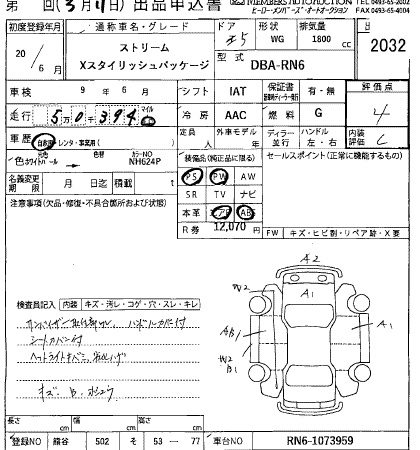 第 回(3月11日)出品申込書
MEMBERS AUTO AUCTION
ヒーロー・メンバーズ・オートオークション
TEL 0493-65-2002
FAX 0493-65-
初度登録年月 通称車名・グレード ドア 形状 排気量
20 / 6月 ストリーム 5 WG 1800 cc 2032
Xスタイリッシュパッケージ 型式 DBA-RN6
車検 9年 6月 シフト IAT 保証書 有・無 評価点
走行 5万0千394 マイル km 冷房 AAC 燃料 G 4
車歴 自家用・レンタ・事業用( ) 定員 人 外車モデル 年 ディーラー 並行 ハンドル 左・右 内装 評価 C
色 ホワイトパール → 色 カラーNO NH624P 装備品(純正品に限る) セールスポイント(正常に機能するもの)
名義変更期限 月 日迄 積載 t PS PW AW
SR TV ナビ
注意事項(欠品・修復・不具合箇所および状態) 本革 エアB AB
R券 12,070
FW キズ・ヒビ割・リペア跡・X要
A2
検査員記入 内装 キズ・汚レ・コゲ・穴・スレ・キレ
W2 A1
サンバイザー ハンドルカバー付
AB1 A1
シートカバー付
W2
B1
ヘッドライト
キズ B
長さ cm 幅 cm 高さ cm
登録NO 熊谷 502 そ 53-77 車台NO RN6-1073959